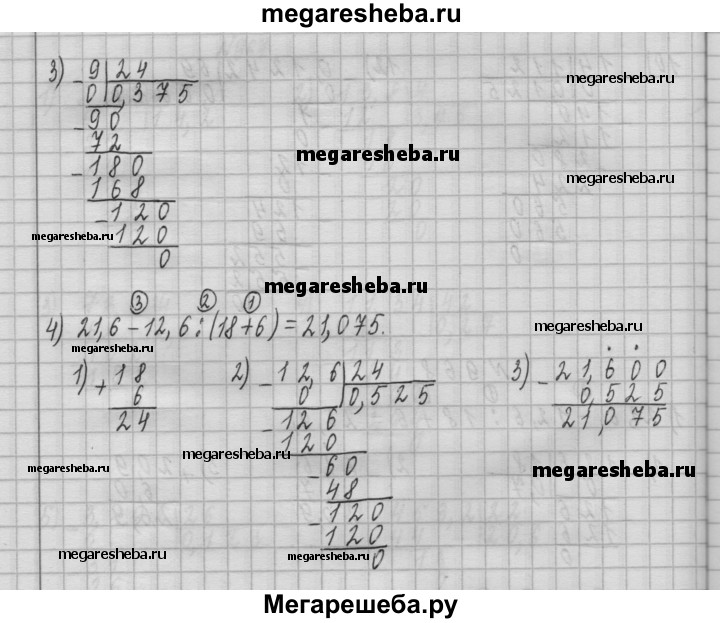 megaresheba.ru
3) - 9 | 24
0 | 0,375
megaresheba.ru
- 90
72
megaresheba.ru
- 180
168
megaresheba.ru
- 120
megaresheba.ru
120
0
megaresheba.ru
3 2 1
4) 21,6 - 12,6 : (18 + 6) = 21,075.
megaresheba.ru
megaresheba.ru
1) + 18
6
24
2) - 12,6 | 24
0 | 0,525
- 126
120
- 60
48
- 120
120
0
3) - 21,600
0,525
21,075
megaresheba.ru
megaresheba.ru
megaresheba.ru
megaresheba.ru
megaresheba.ru
Мегарешеба.ру